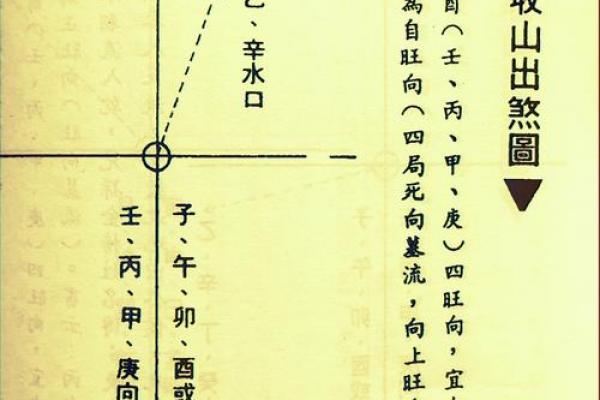 收山出煞圖▼
酉（壬、丙、甲、庚）四旺向，宜
為自旺向（四局死向墓流，向上旺
乙、辛水口
子、午、卯、酉或
壬、丙、甲、庚向